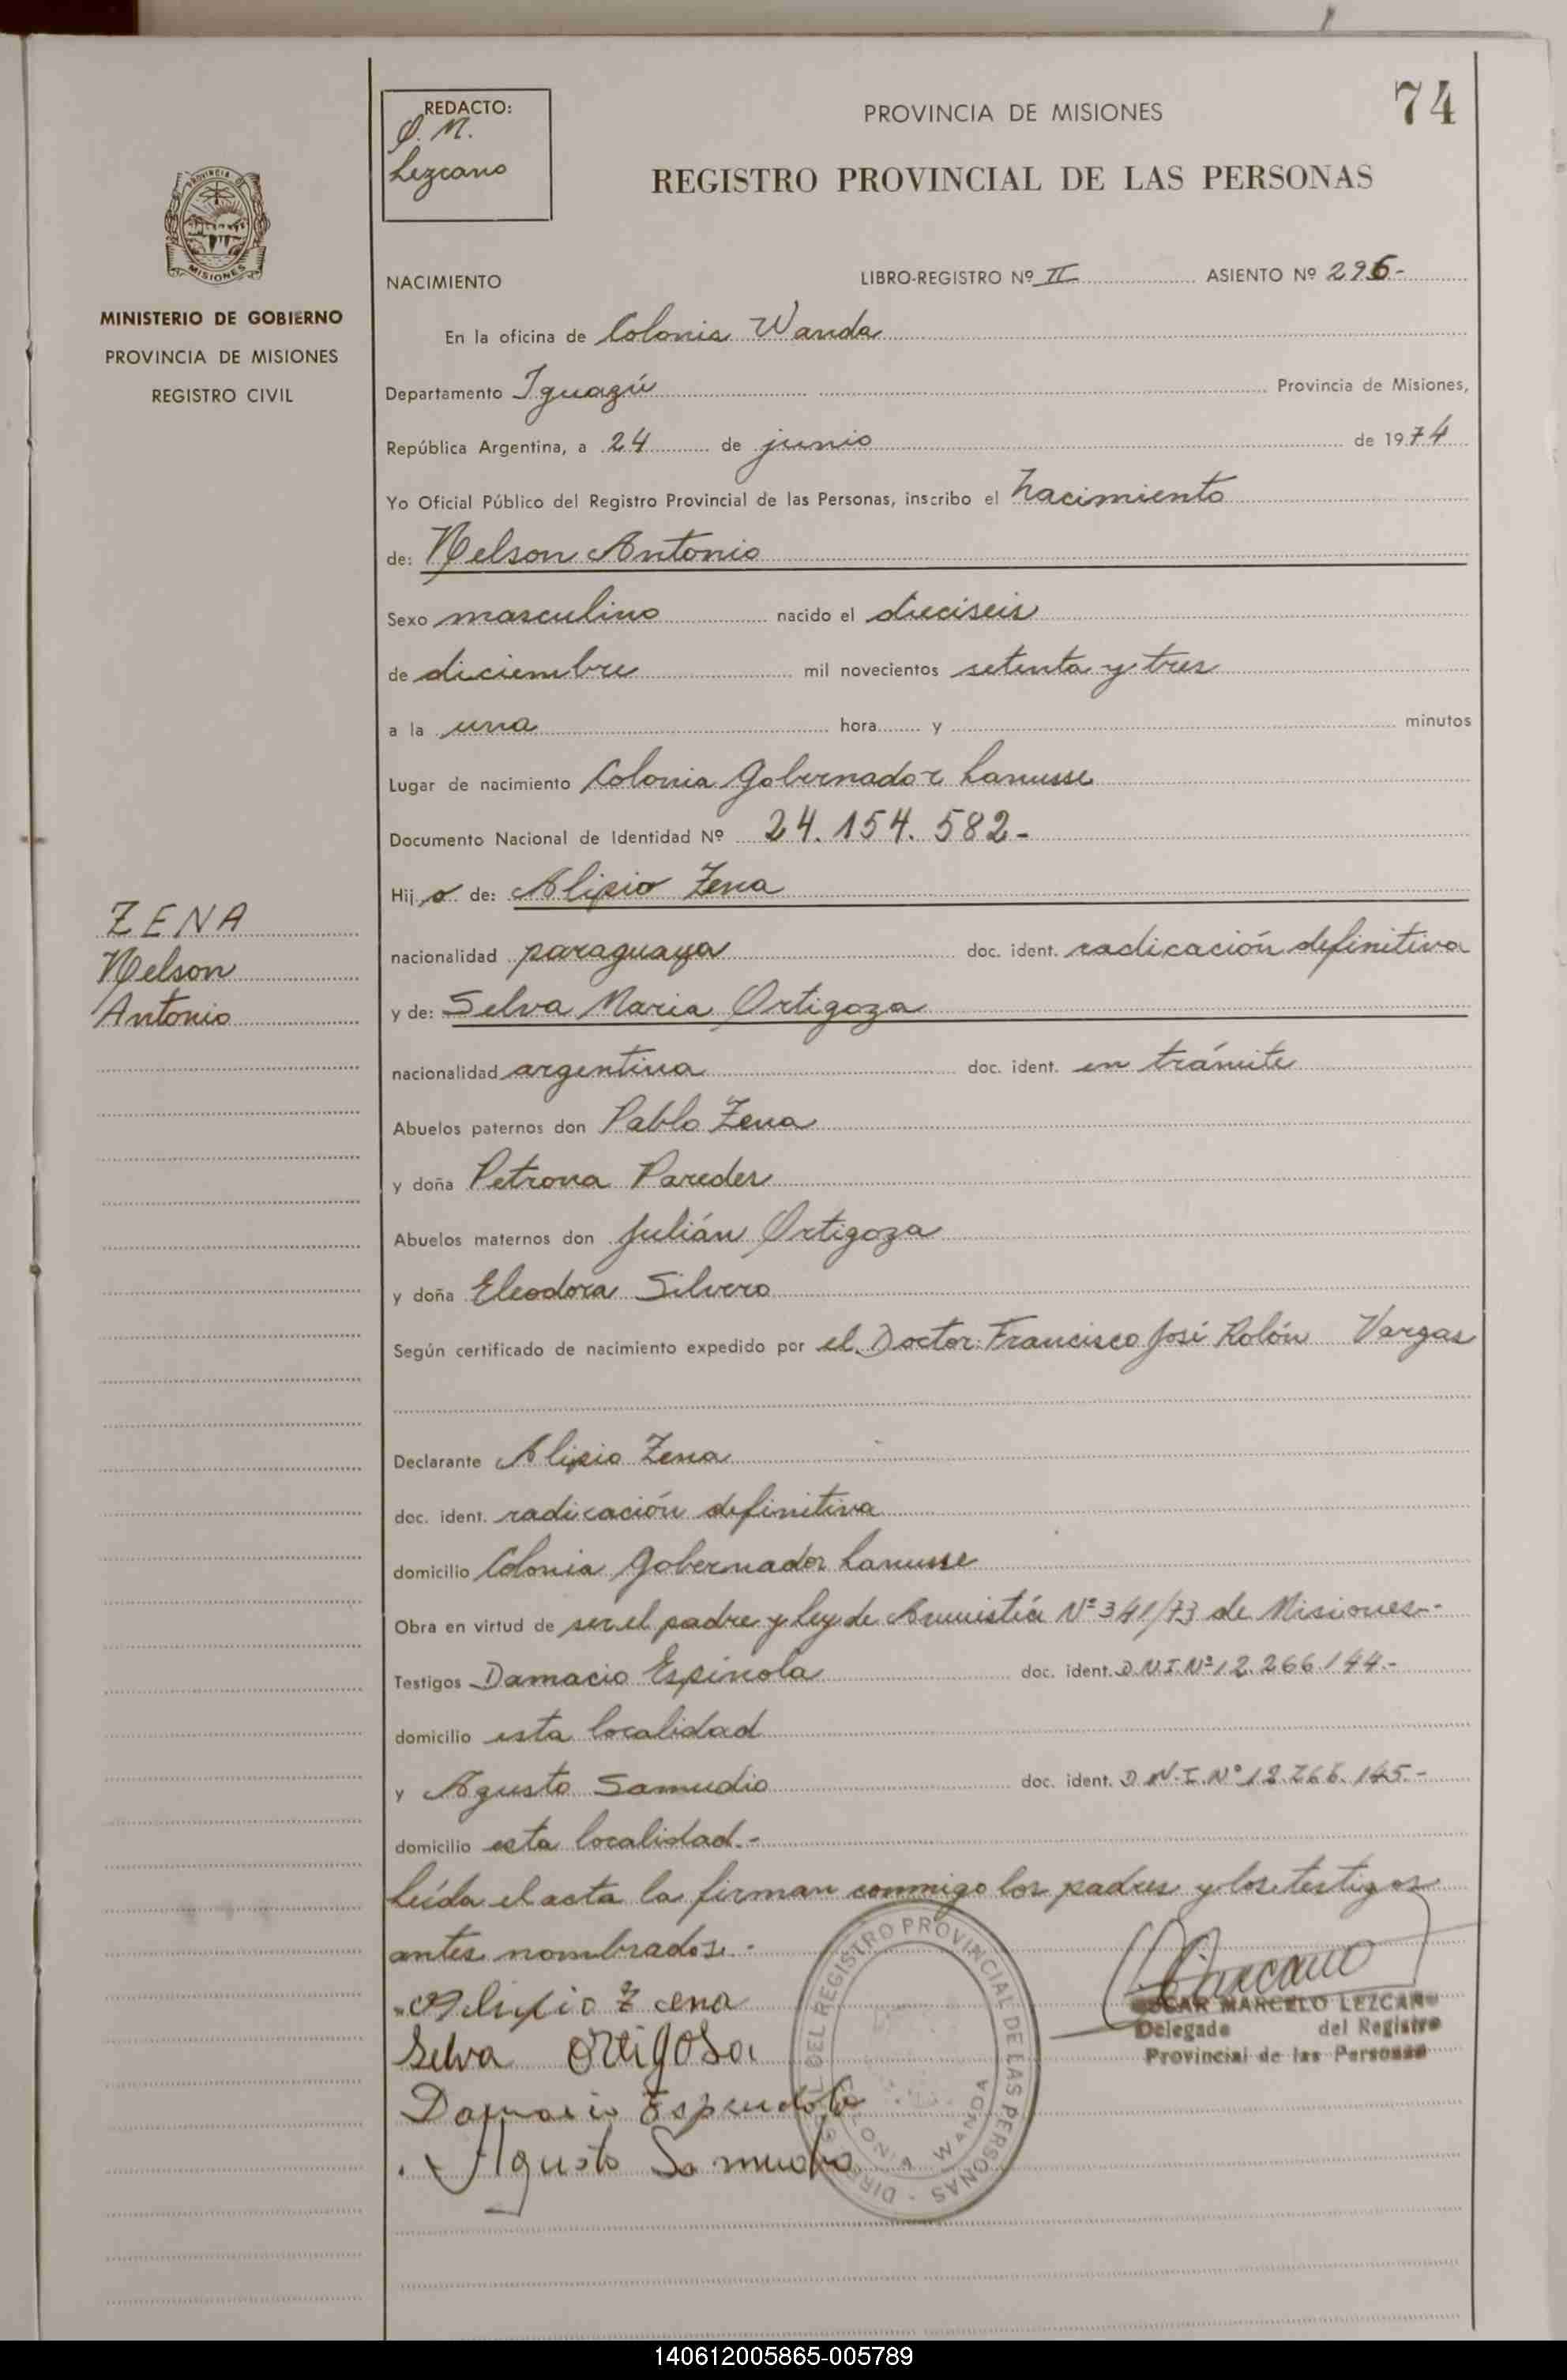 74
REDACTO:
O. M.
Lezcano
PROVINCIA DE MISIONES
REGISTRO PROVINCIAL DE LAS PERSONAS
PROVINCIA DE
MISIONES
MINISTERIO DE GOBIERNO
PROVINCIA DE MISIONES
REGISTRO CIVIL
NACIMIENTO LIBRO-REGISTRO Nº II ASIENTO Nº 296-
En la oficina de Colonia Wanda
Departamento Iguazú Provincia de Misiones,
República Argentina, a 24 de junio de 1974
Yo Oficial Público del Registro Provincial de las Personas, inscribo el nacimiento
de: Nelson Antonio
Sexo masculino nacido el dieciseis
de diciembre mil novecientos setenta y tres
a la una hora y minutos
Lugar de nacimiento Colonia Gobernador Lanusse
Documento Nacional de Identidad Nº 24.154.582-
Hijo de: Alipio Zena
ZENA
Nelson
Antonio
nacionalidad paraguaya doc. ident. radicación definitiva
y de: Selva Maria Ortigoza
nacionalidad argentina doc. ident. en trámite
Abuelos paternos don Pablo Zena
y doña Petrona Paredes
Abuelos maternos don Julián Ortigoza
y doña Eleodora Silvero
Según certificado de nacimiento expedido por el Doctor: Francisco José Rolón Vargas
Declarante Alipio Zena
doc. ident. radicación definitiva
domicilio Colonia Gobernador Lanusse
Obra en virtud de ser el padre y Ley de Amnistía Nº 341/73 de Misiones-
Testigos Damacio Espinola doc. ident. D.N.I. Nº 12.266.144.-
domicilio esta localidad
y Agusto Samudio doc. ident. D.N.I. Nº 12.266.145.-
domicilio esta localidad.-
Leída el acta la firman conmigo los padres y los testigos
antes nombrados.-
Alipio Zena
Selva Ortigosa
Damacio Espindola
Agusto Samudio
DEL REGISTRO PROVINCIAL DE LAS PERSONAS
COLONIA WANDA
Lezcano
OSCAR MARCELO LEZCANO
Delegado del Registro
Provincial de las Personas
140612005865-005789